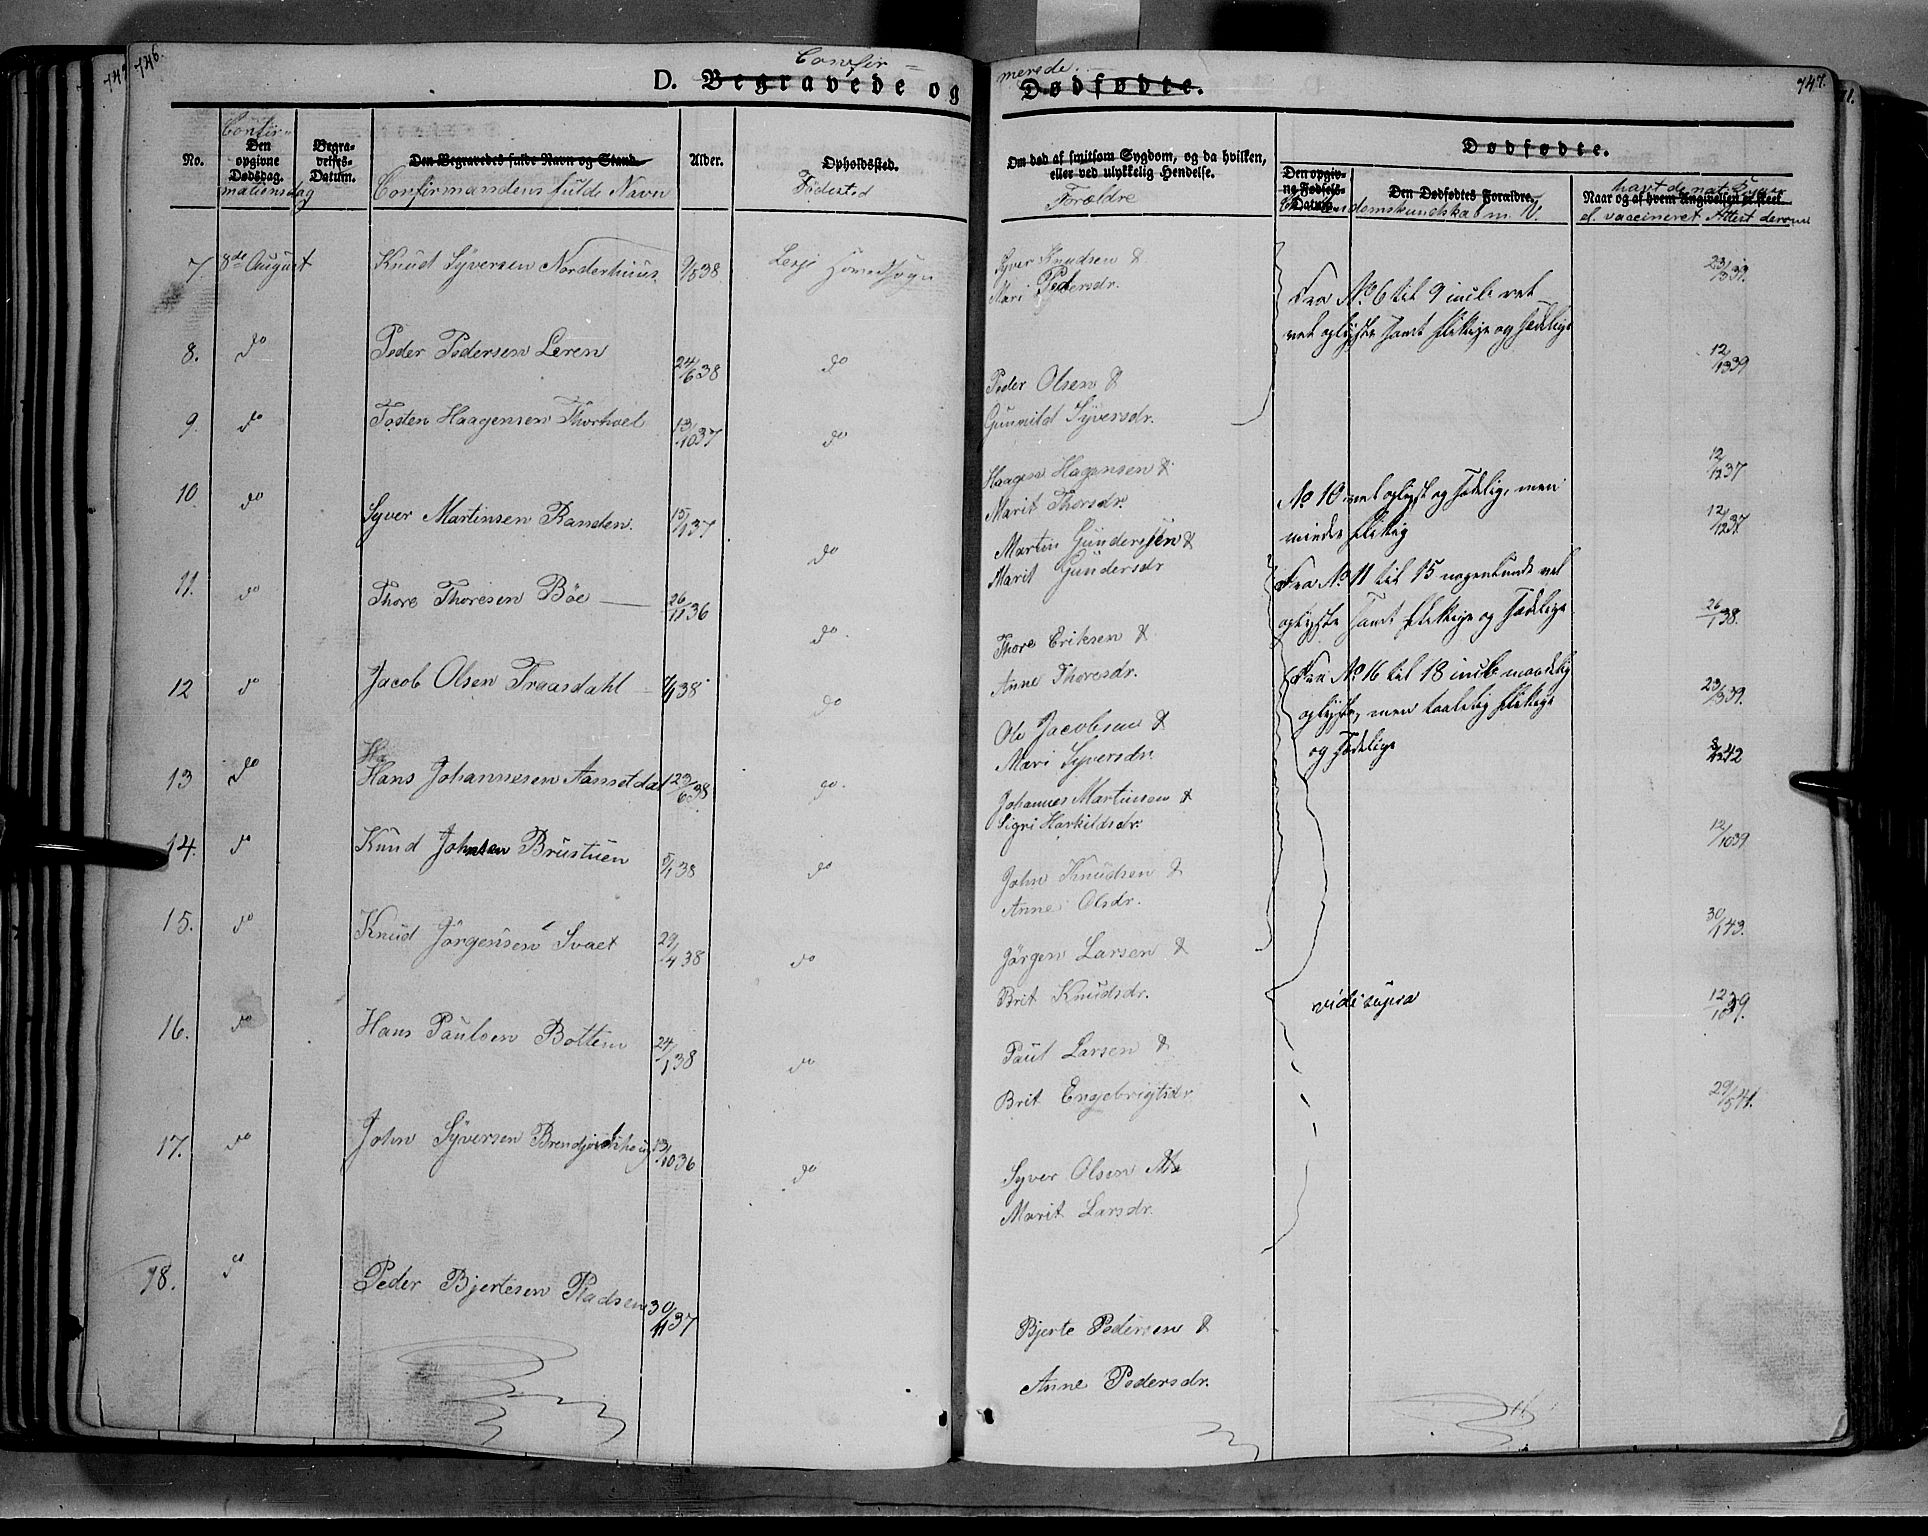 746.
D. Begravede og
Confir=
No.
Confir=
Den opgivne Dødsdag.
mationsdag
Begravelses-Datum.
Den Begravedes fulde Navn og Stand.
Confirmandens fulde Navn
Alder.
Opholdssted.
Fødested
7 8de August Knud Syversen Norderhuus 9/8 38 Lesje Hovedsogn
8. do Peder Pedersen Leren 24/6 38 do
9. do Tosten Haagensen Thorhoel 13/10 37 do
10 do Syver Martinsen Randen. 15/1 37 do
11. do Thore Thoresen Böe 26/11 36 do.
12 do Jacob Olsen Traasdahl 7/1 38 do
13 do Hans Johannesen Aansetdal 23/6 38 do.
14. do Knud Johnsen Brustuen 5/1 38 do
15. do Knud Jörgensen Svaet 29/4 38 do
16. do Hans Paulsen Bottem 24/1 38 do
17. do John Syversen 13/10 36 do
18. do Peder Bjertesen Pladsen 30/11 37
merede.
Dødfødte.
747.
Om død af smitsom Sygdom, og da hvilken, eller ved ulykkelig Hendelse.
Forældre
Dødfødte.
Den opgivne Fødsels-Datum.
Den Dødfødtes Forældre.
Naar og af hvem Angivelsen er skeet
havt de nat. Kopper
el. vaccineret Attest derom
Syver Knudsen &
Mari Pedersdr.
23/3 39.
Fra No. 6 til 9 incl. vel
vel oplyste samt flittige og sædelige
Peder Olsen &
Gunnild Syversdr.
12/1 39
Haagen Hagensen &
Marit Thorsdr.
12/12 37
No 10 vel oplyst og sædelig, men
mindre flittig
Martin Gundersen &
Marit Gundersdr
12/12 37
Fra No 11 til 15 nogenlunde vel
oplyste samt flittige og sædelige
Thore Eriksen &
Anne Thoresdr.
26/1 38.
Fra No 16 til 18 incl. maadelig
oplyste, men taalelig flittige
og sædelige
Ole Jacobsen &
Mari Syversdr.
23/3 39.
Johannes Martinsen &
Sigri Harkildsdr.
42
John Knudsen &
Anne Olsdr.
12/10 39
Jörgen Larsen &
Brit Knudsdr.
30/1 43.
vide supra
Paul Larsen &
Brit Engebrigtsdr
12/10 39.
Syver Olsen
Marit Larsdr.
29/5 41.
Bjerte Pedersen &
Anne Pedersdr.